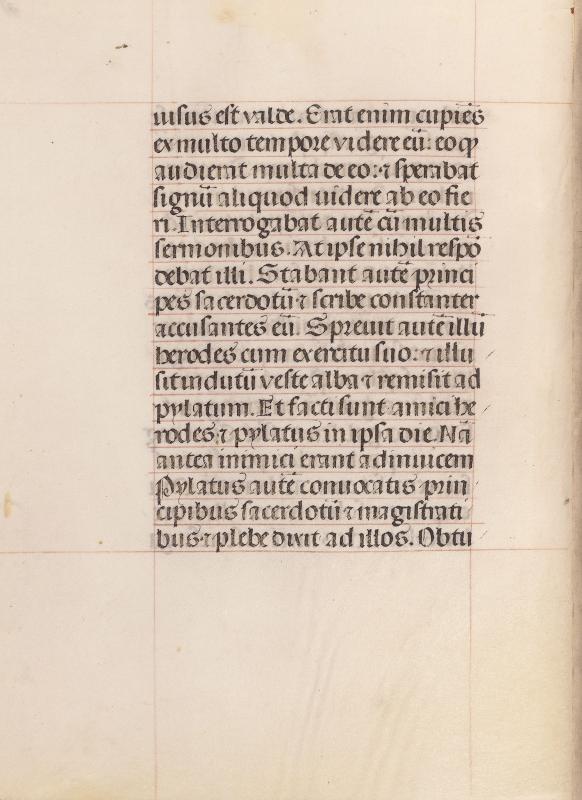 uisus est valde. Erat enim cupiēs
ex multo tempore videre eū: eo qꝫ
audierat multa de eo: ⁊ sperabat
signū aliquod uidere ab eo fie
ri. Interrogabat autē cū multis
sermonibus. At ipse nihil respō
debat illi. Stabant autē princi
pes sacerdotū ⁊ scribe constanter
accusantes eū. Spreuit autē illū
herodes cum exercitu suo: ⁊ illu
sit indutū veste alba ⁊ remisit ad
pylatum. Et facti sunt amici he
rodes ⁊ pylatus in ipsa die. Nā
antea inimici erant adinuicem
Pylatus autē conuocatis prin
cipibus sacerdotū ⁊ magistrati
bus ⁊ plebe dixit ad illos. Obtu